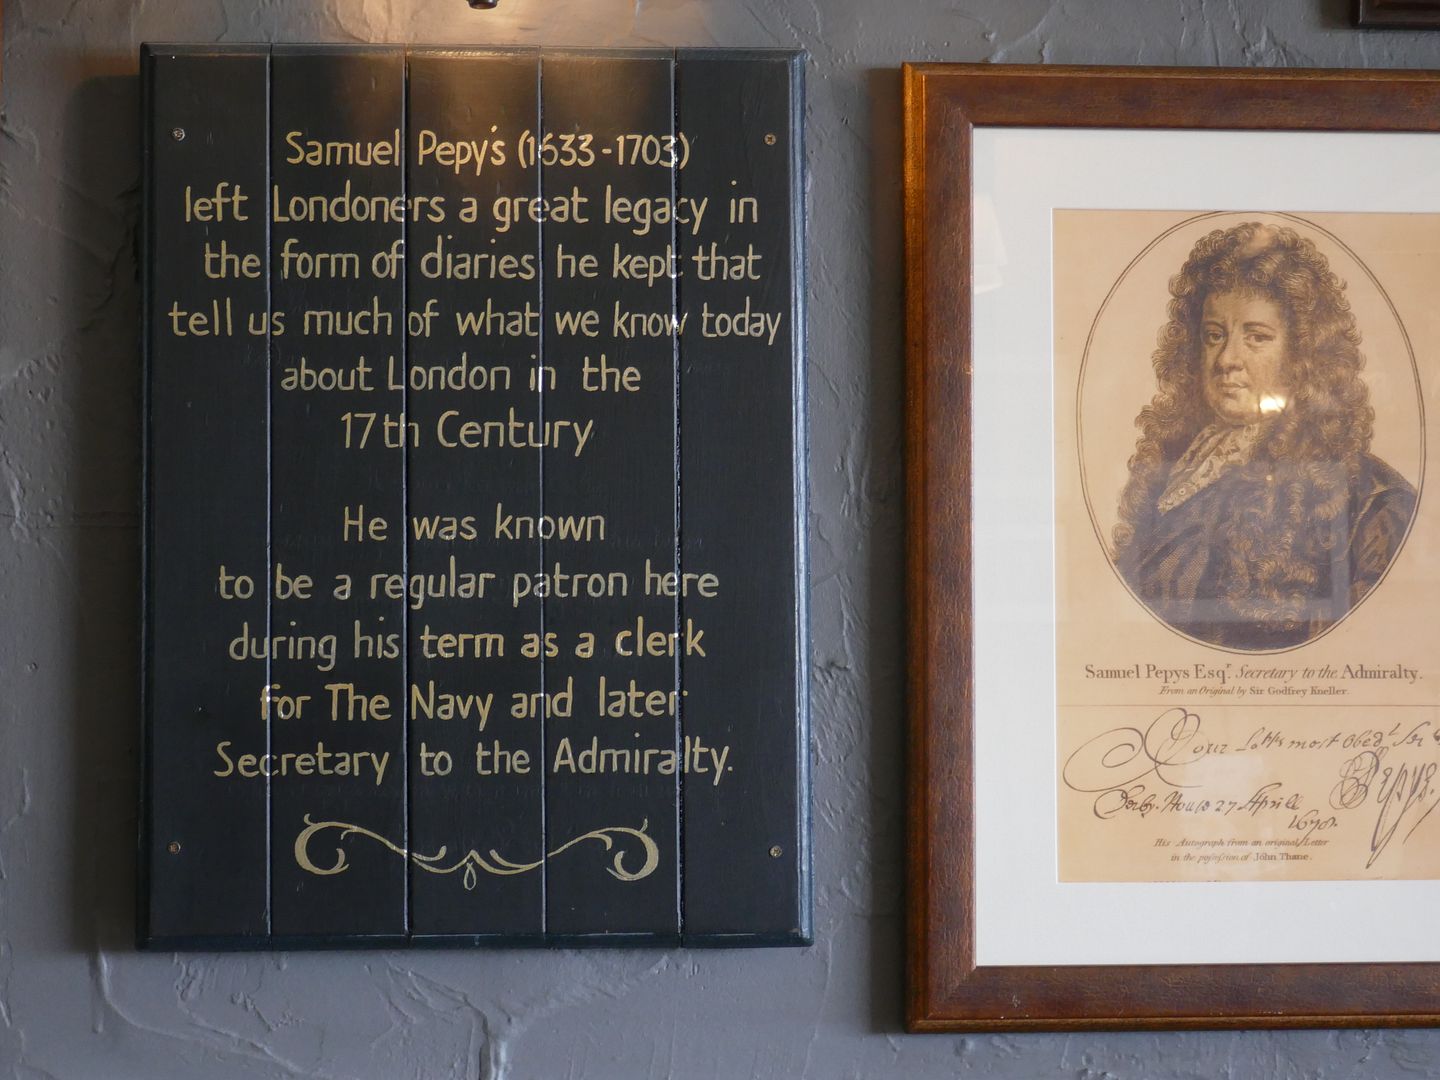 Samuel Pepy's (1633-1703)
left Londoners a great legacy in
the form of diaries he kept that
tell us much of what we know today
about London in the
17th Century
He was known
to be a regular patron here
during his term as a clerk
for The Navy and later
Secretary to the Admiralty.
Samuel Pepys Esqr. Secretary to the Admiralty.
From an Original by Sir Godfrey Kneller.
most Obedt
Derby House 27 Aprill
1678.
Pepys.
His Autograph from an original Letter
in the possession of John Thane.